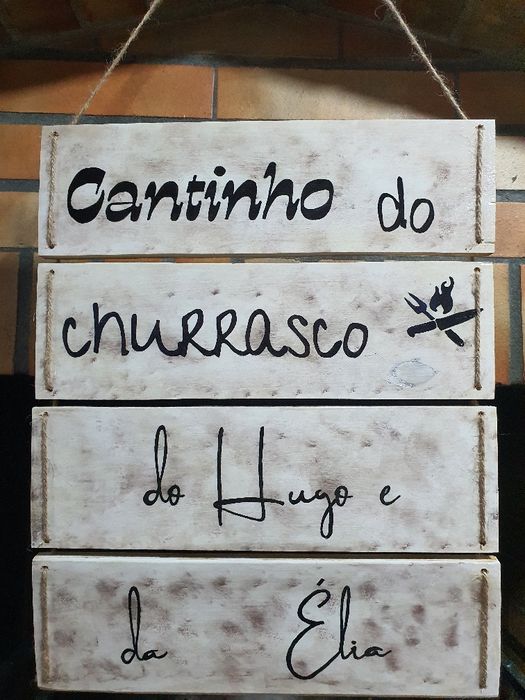 Cantinho do
churrasco
do Hugo e
da Élia